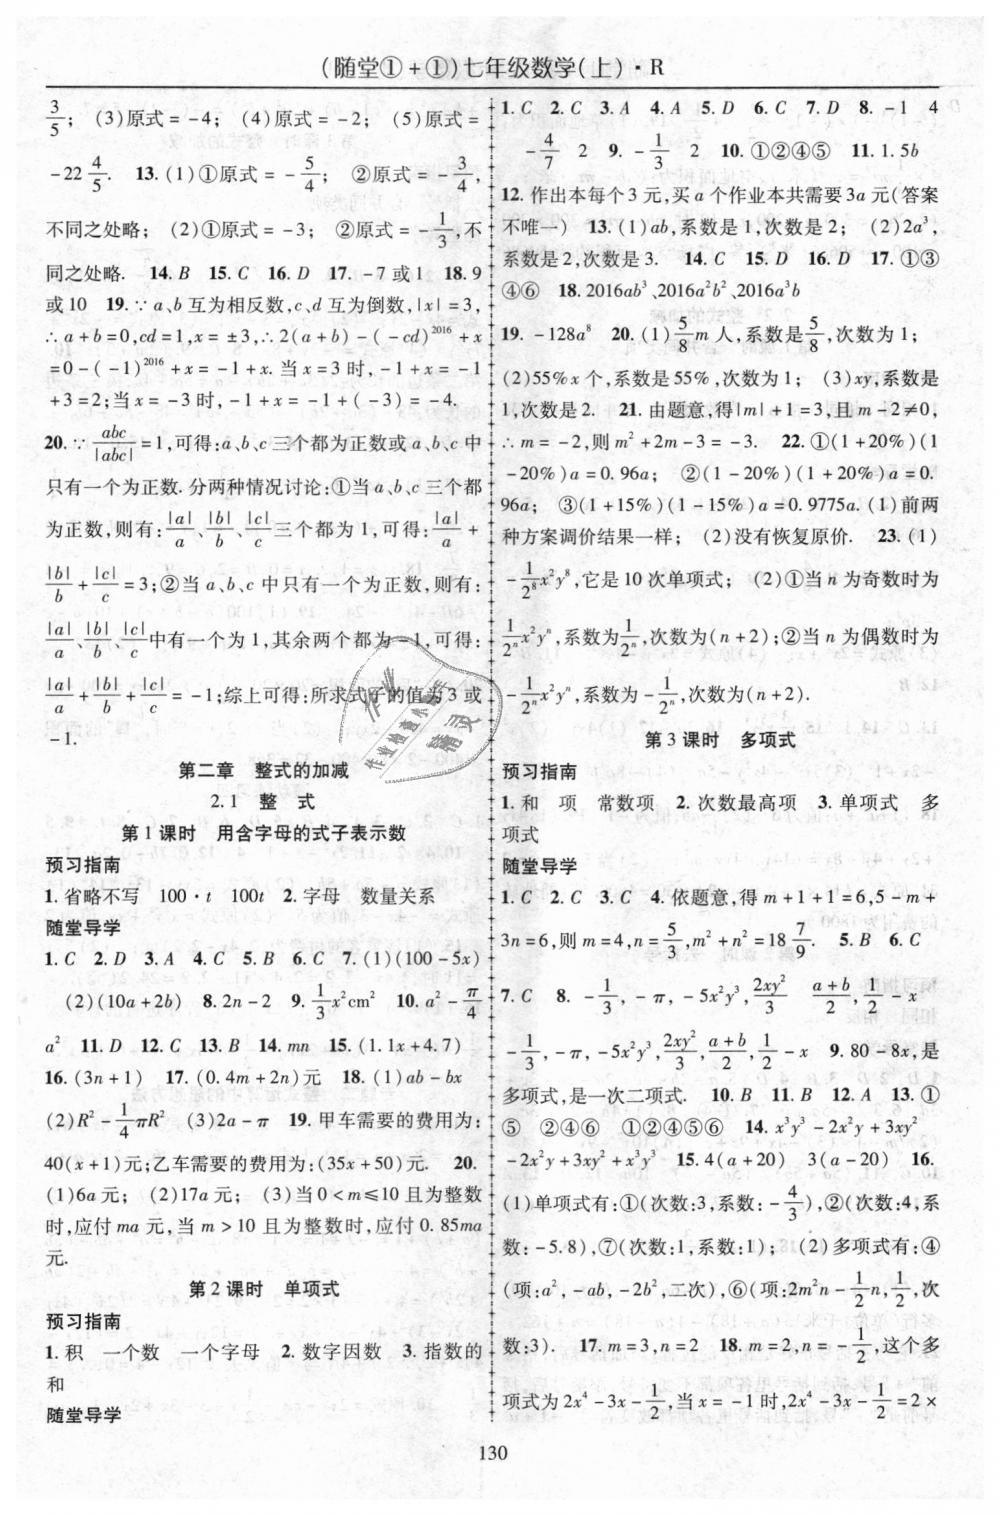 (随堂①+①)七年级数学(上)·R
3/5; (3)原式=-4; (4)原式=-2; (5)原式=
-22 4/5. 13.(1)①原式=-5/4; ②原式=-3/4,
不同之处略; (2)①原式=-3; ②原式=-1/3,不
同之处略. 14.B 15.C 16.D 17.-7或1 18.9
或10 19.∵a、b互为相反数,c、d互为倒数,|x|=3,
∴a+b=0,cd=1,x=±3,∴2(a+b)-(-cd)^2016+x
=0-(-1)^2016+x=-1+x.当x=3时,-1+x=-1
+3=2;当x=-3时,-1+x=-1+(-3)=-4.
20.∵abc/|abc|=1,可得:a、b、c三个都为正数或a、b、c中
只有一个为正数.分两种情况讨论:①当a、b、c三个都
为正数,则有:|a|/a、|b|/b、|c|/c三个都为1,可得:|a|/a+
|b|/b+|c|/c=3;②当a、b、c中只有一个为正数,则有:
|a|/a、|b|/b、|c|/c中有一个为1,其余两个都为-1,可得:
|a|/a+|b|/b+|c|/c=-1;综上可得:所求式子的值为3或
-1.
第二章 整式的加减
2.1 整 式
第1课时 用含字母的式子表示数
预习指南
1.省略不写 100·t 100t 2.字母 数量关系
随堂导学
1.C 2.D 3.A 4.C 5.B 6.C 7.(1)(100-5x)
(2)(10a+2b) 8.2n-2 9.1/3x²cm² 10.a²-π/4
a² 11.D 12.C 13.B 14.mn 15.(1.1x+4.7)
16.(3n+1) 17.(0.4m+2n)元 18.(1)ab-bx
(2)R²-1/4πR² (3)2a-π 19.甲车需要的费用为:
40(x+1)元;乙车需要的费用为:(35x+50)元. 20.
(1)6a元; (2)17a元; (3)当0<m≤10且为整数
时,应付ma元,当m>10且为整数时,应付0.85ma
元.
第2课时 单项式
预习指南
1.积 一个数 一个字母 2.数字因数 3.指数的
和
随堂导学
1.C 2.C 3.A 4.A 5.D 6.C 7.D 8.-1 4
-4/7 2 9.-1/3 2 10.①②④⑤ 11.1.5b
12.作出本每个3元,买a个作业本共需要3a元(答案
不唯一) 13.(1)ab,系数是1,次数是2; (2)2a³,
系数是2,次数是3. 14.C 15.D 16.D 17.①③
④⑥ 18.2016ab³、2016a²b²、2016a³b
19.-128a⁸ 20.(1)5/8m人,系数是5/8,次数为1;
(2)55%x个,系数是55%,次数为1; (3)xy,系数是
1,次数是2. 21.由题意,得|m|+1=3,且m-2≠0,
∴m=-2,则m²+2m-3=-3. 22.①(1+20%)(1
-20%)a=0.96a; ②(1-20%)(1+20%)a=0.
96a; ③(1+15%)(1-15%)a=0.9775a.(1)前两
种方案调价结果一样; (2)没有恢复原价. 23.(1)
-1/2⁸x²y⁸,它是10次单项式; (2)①当n为奇数时为
1/2ⁿx²yⁿ,系数为1/2ⁿ,次数为(n+2);②当n为偶数时为
-1/2ⁿx²yⁿ,系数为-1/2ⁿ,次数为(n+2).
第3课时 多项式
预习指南
1.和 项 常数项 2.次数最高项 3.单项式 多
项式
随堂导学
1.C 2.C 3.C 4.依题意,得m+1+1=6,5-m+
3n=6,则m=4,n=5/3,m²+n²=18 7/9. 5.B 6.C
7.C 8.-1/3,-π,-5x²y³,2xy²/3 a+b/2,1/2-x
-1/3,-π,-5x²y³,2xy²/3,a+b/2,1/2-x 9.80-8x,是
多项式,是一次二项式. 10.B 11.B 12.A 13.①
⑤ ②④⑥ ①②④⑤⑥ 14.x³y³-2x²y+3xy²
-2x²y+3xy²+x³y³ 15.4(a+20) 3(a-20) 16.
(1)单项式有:①(次数:3,系数:-4/3),②(次数:4,系
数:-5.8),⑦(次数:1,系数:1); (2)多项式有:④
(项:a²,-ab,-2b²,二次),⑥(项:2m²n,-1/2n,1/2,次
数:3). 17.m=3,n=2 18.m=2,n=-1/2,这个多
项式为2x⁴-3x-1/2,当x=-1时,2x⁴-3x-1/2=2×
130
作业
作业检查小帮手
精灵